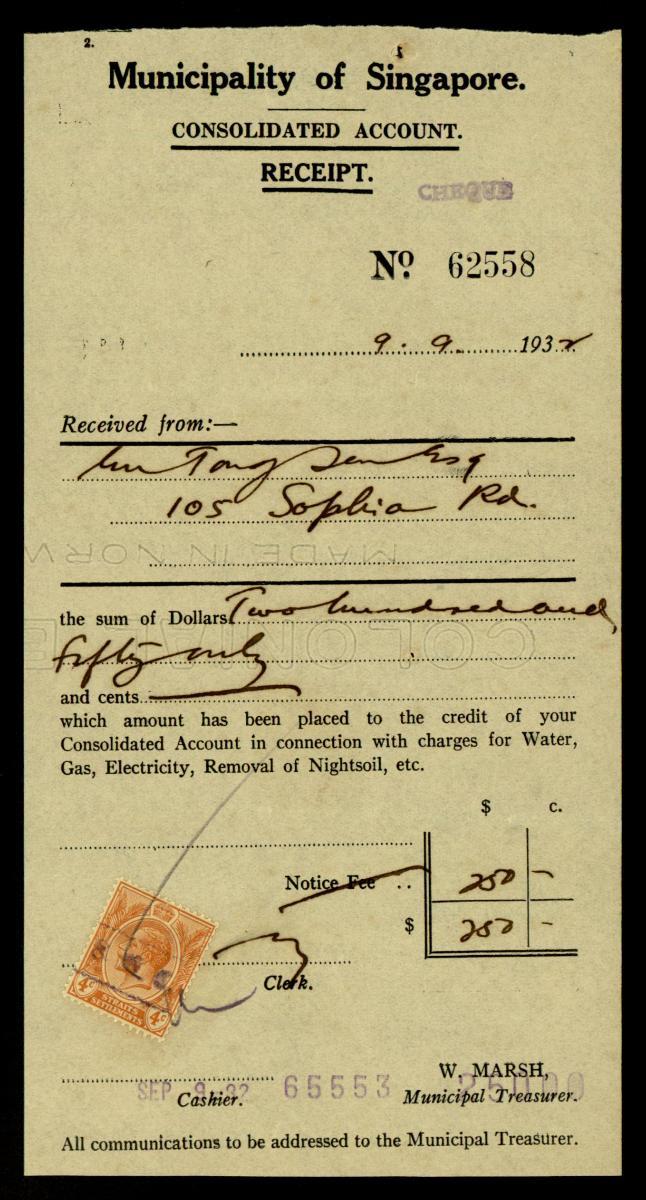 2.
Municipality of Singapore.
CONSOLIDATED ACCOUNT.
RECEIPT.
CHEQUE
Nº 62558
9. 9. 1932
Received from:—
Tong Sen Esq
105 Sophia Rd.
MADE IN NORW
the sum of Dollars Two hundred and
fifty only
and cents
which amount has been placed to the credit of your
Consolidated Account in connection with charges for Water,
Gas, Electricity, Removal of Nightsoil, etc.
$ c.
Notice Fee .. 250 -
$ 250 -
Clerk.
4c STRAITS SETTLEMENTS 4c
W. MARSH,
SEP 9 32 65553 25000
Cashier. Municipal Treasurer.
All communications to be addressed to the Municipal Treasurer.